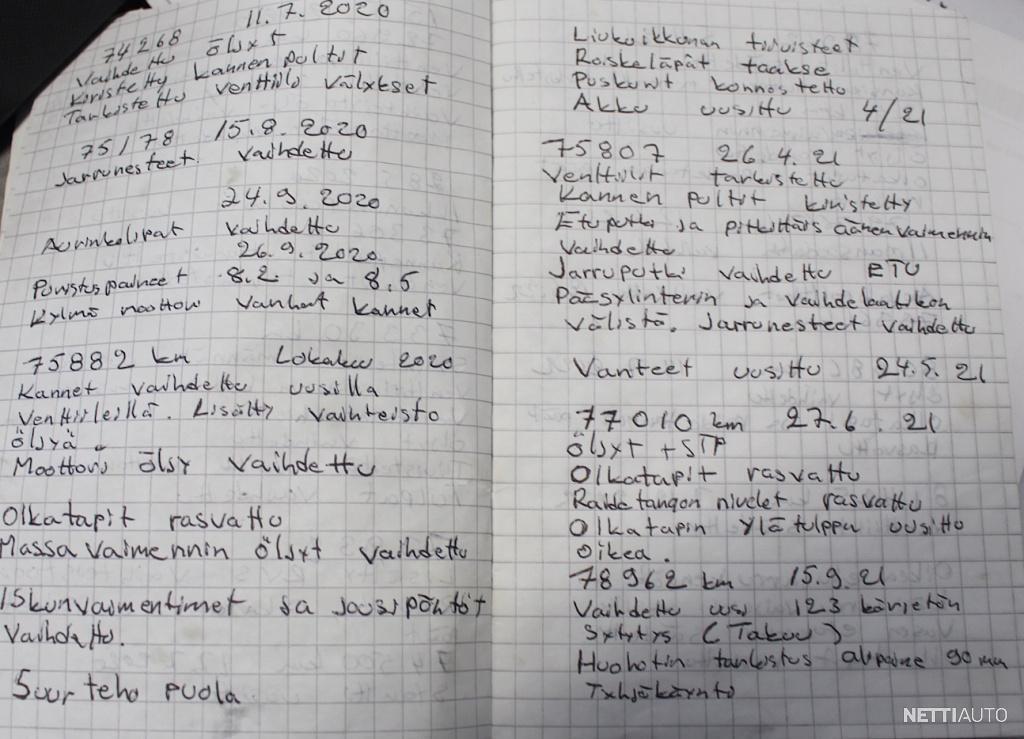 11.7.2020
74268 ölyxt
Vaihdettu
Kiristetty kannen pultut
Tarkistettu venttiilo välykset
75178 15.8.2020
Jarrunesteet vaihdettu
24.9.2020
Aurinkolipat vaihdettu
26.9.2020
Puristuspaineet 8.2 ja 8.5
Kylmä moottori vanhat kannet
75882 km Lokakuu 2020
Kannet vaihdettu uusilla
Venttiileillä. Lisätty vaihteisto
öljyä
Moottori öljy vaihdettu
Olkatapit rasvattu
Massavaimennin öljyt vaihdettu
Iskunvaimentimet ja jousipöntöt
Vaihdettu.
Suurteho puola
Liukuikkunan tiivisteet
Roiskeläpät taakse
Puskurit konnostettu
Akku uusittu 4/21
75807 26.4.21
Venttiilit tarkistettu
Kannen pultit kiristetty
Etuputki ja pitkittäis äänenvaimennin
Vaihdettu
Jarruputki vaihdettu ETU
Pääsylinterin ja vaihdelaatikon
välistä. Jarrunesteet vaihdettu
Vanteet uusittu 24.5.21
77010 km 27.6.21
Öljyt + STP
Olkatapit rasvattu
Raidetangon nivelet rasvattu
Olkatapin ylätulppa uusittu
Oikea.
78962 km 15.9.21
Vaihdettu uusi 123 kärjetön
Sytytys (Takuu)
Huohotin tarkistus alipaine 90 mm
Tyhjäkäynto
NETTIAUTO